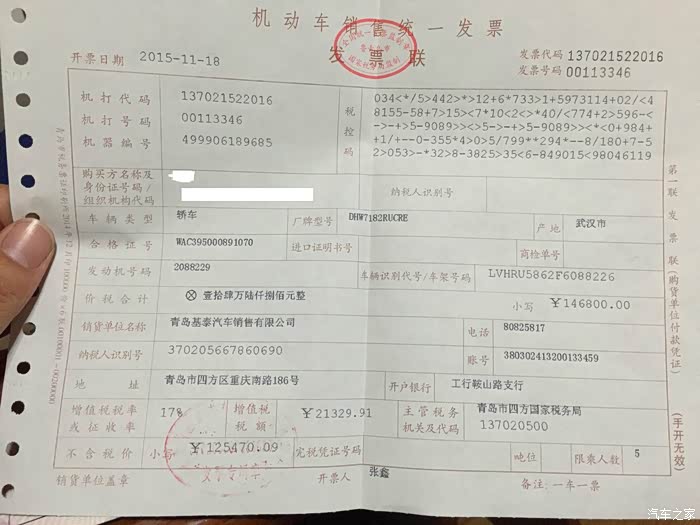 机动车销售统一发票
发票联
开票日期 2015-11-18
发票代码 137021522016
发票号码 00113346
机打代码 137021522016
机打号码 00113346
机器编号 499906189685
税控码
034<*/5>442>*>12+6*733>1+5973114+02/<4
8155-58+7>15><7*10<2<>*40/<774+2>596-<
->-+>5-9089>><>5->-+>5-9089>><*<0+984+
+1/+--0-355*4>0>5/799**294*--8/180+7-5
2>053>-*32>8-3825>35<6-849015<98046119
购买方名称及
身份证号码/
组织机构代码
纳税人识别号
车辆类型 轿车 厂牌型号 DHW7182RUCRE 产地 武汉市
合格证号 WAC395000891070 进口证明书号 商检单号
发动机号码 2088229 车辆识别代号/车架号码 LVHRU5862F6088226
价税合计 ⊗壹拾肆万陆仟捌佰元整 小写 ¥146800.00
销货单位名称 青岛基泰汽车销售有限公司 电话 80825817
纳税人识别号 370205667860690 账号 3803024132001​33459
地址 青岛市四方区重庆南路186号 开户银行 工行鞍山路支行
增值税税率
或征收率
17%
增值税
税额
¥21329.91
主管税务
机关及代码
青岛市四方国家税务局
137020500
不含税价 小写 ¥125470.09 完税凭证号码 吨位 限乘人数 5
销货单位盖章 开票人 张鑫 备注：一车一票
第一联 发票联（购货单位付款凭证）
（手开无效）
汽车之家